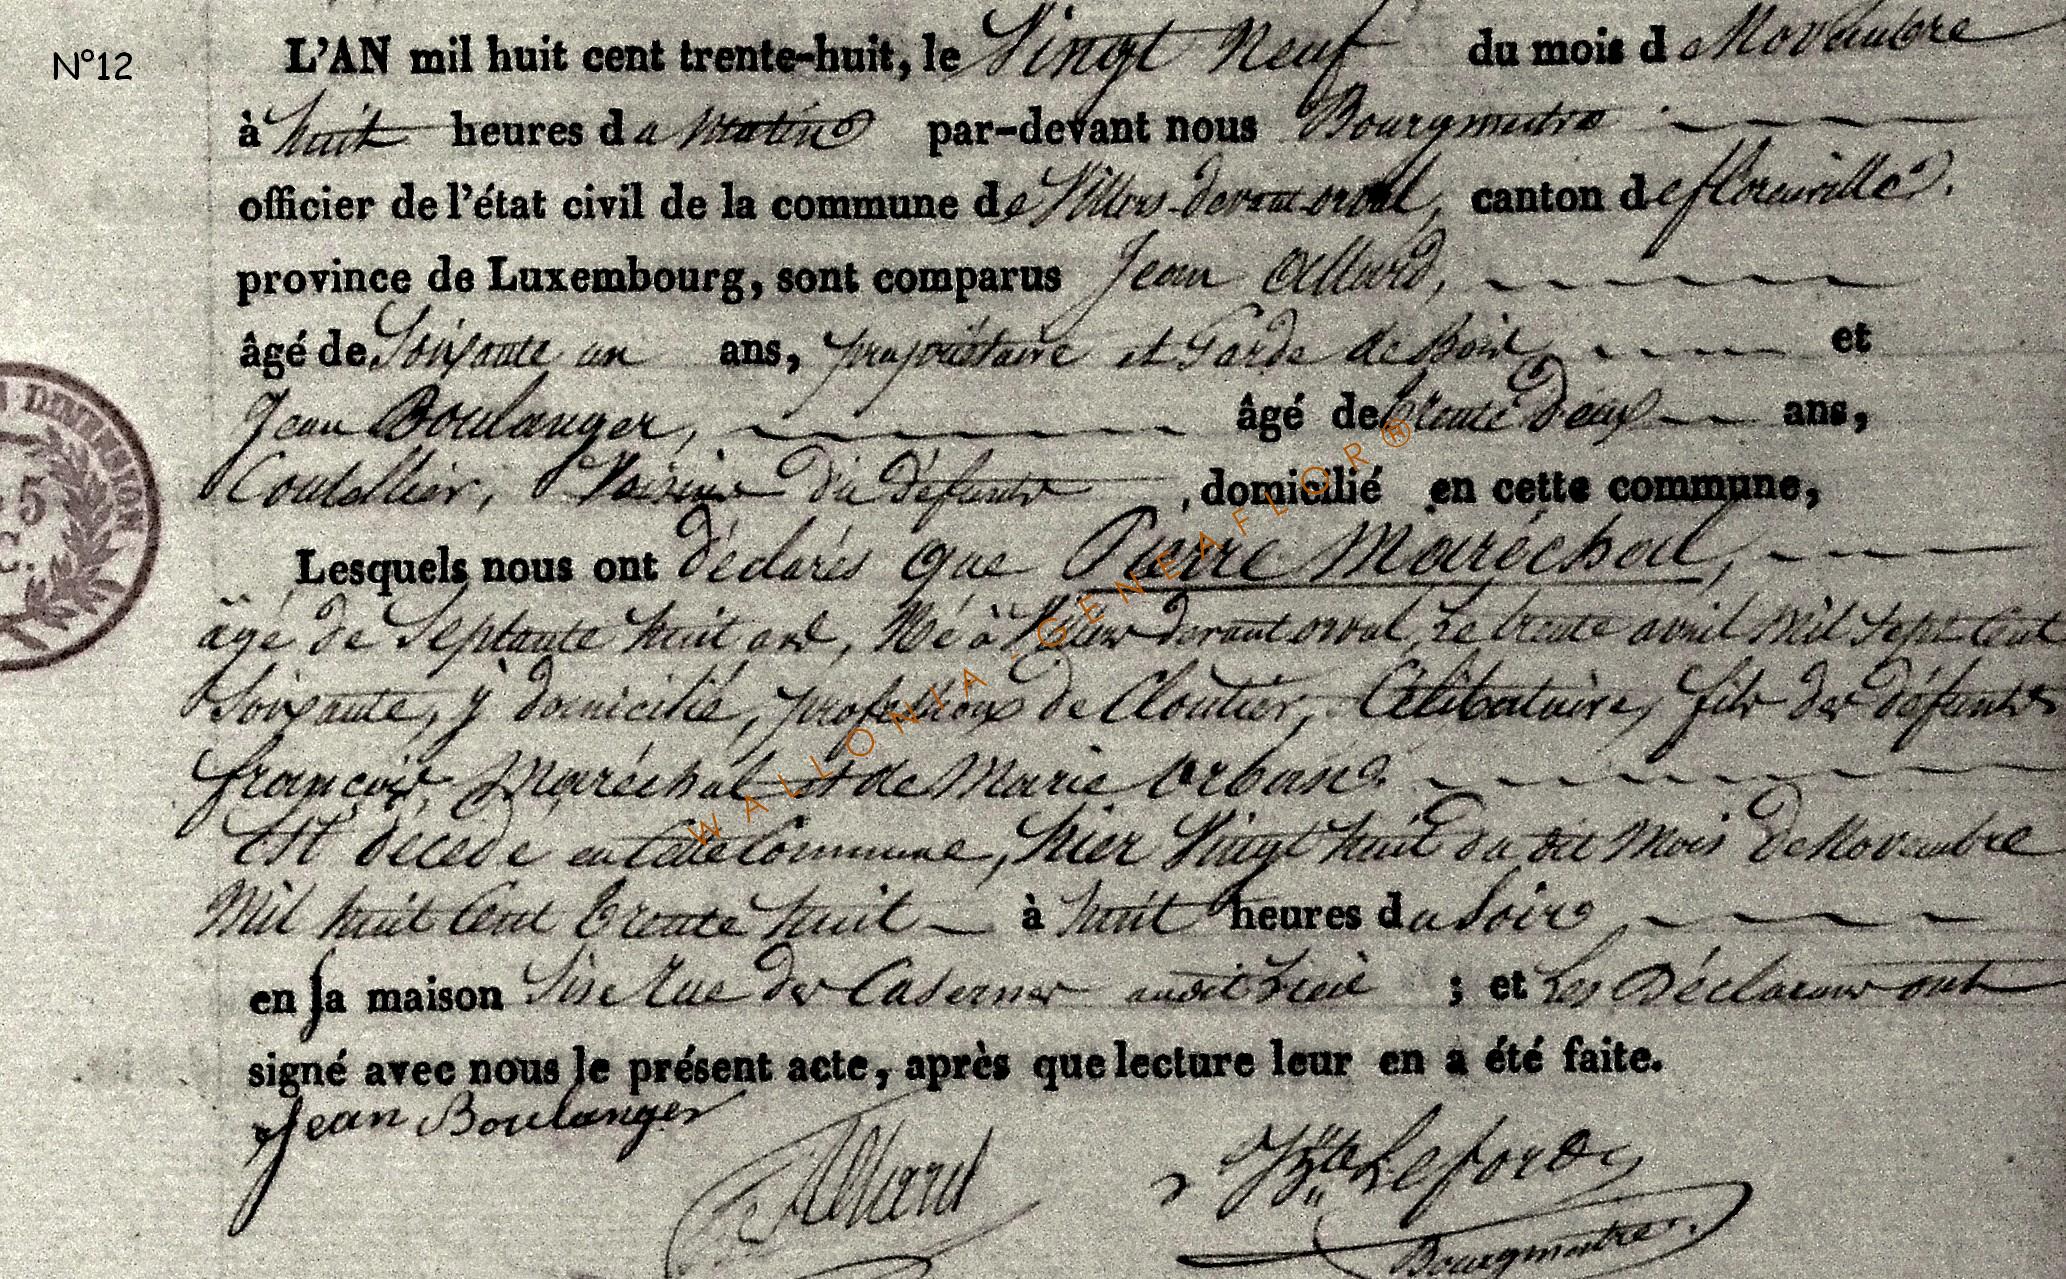 N°12
L'AN mil huit cent trente-huit, le Vingt Neuf du mois de Novembre
à huit heures du matin par-devant nous Bourgmestre
officier de l'état civil de la commune de Villers-devant-orval, canton de florenville.
province de Luxembourg, sont comparus Jean Allard,
âgé de Soixante un ans, propriétaire et Garde de Bois, et
Jean Boulanger, âgé de trente deux ans,
Coutellier, Voisins du défunt, domicilié en cette commune,
Lesquels nous ont déclarés que Pierre Maréchal,
âgé de Septante huit ans, Né à Villers devant orval, Le trente avril Mil Sept Cent
Soixante, y domicilié, profession de Cloutier, Célibataire, fils des défunts
françois Maréchal et de Marie Orban.
Est décédé en Cette Commune, hier Vingt huit du dit Mois de Novembre
Mil huit Cent Trente huit à huit heures du Soir
en sa maison Sise Rue des Casernes audit Lieu ; et Les Déclarans ont
signé avec nous le présent acte, après que lecture leur en a été faite.
Jean Boulanger
Allard
Lefort
Bourgmestre.
DIMENSION
5
C.
WALLONIA-GENEAFLOR®